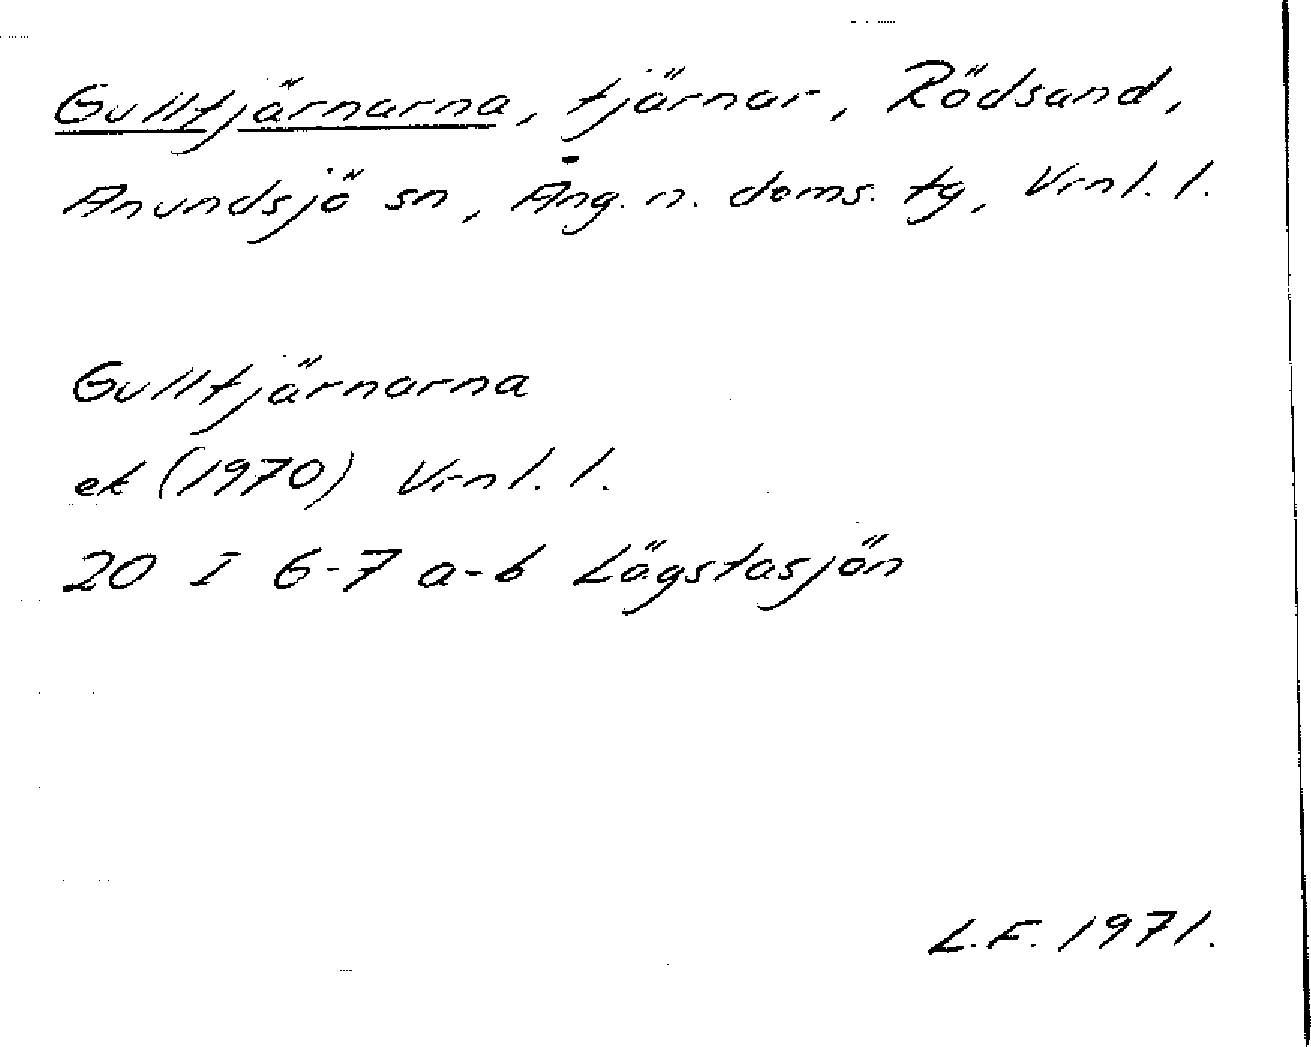 Gulltjärnarna, tjärnar, Rödsand,
Anundsjö sn, Ång. n. doms. tg, Vrnl. l.
Gulltjärnarna
ek (1970) Vrnl. l.
20 I 6-7 a-b Lägstasjön
L.F. 1971.